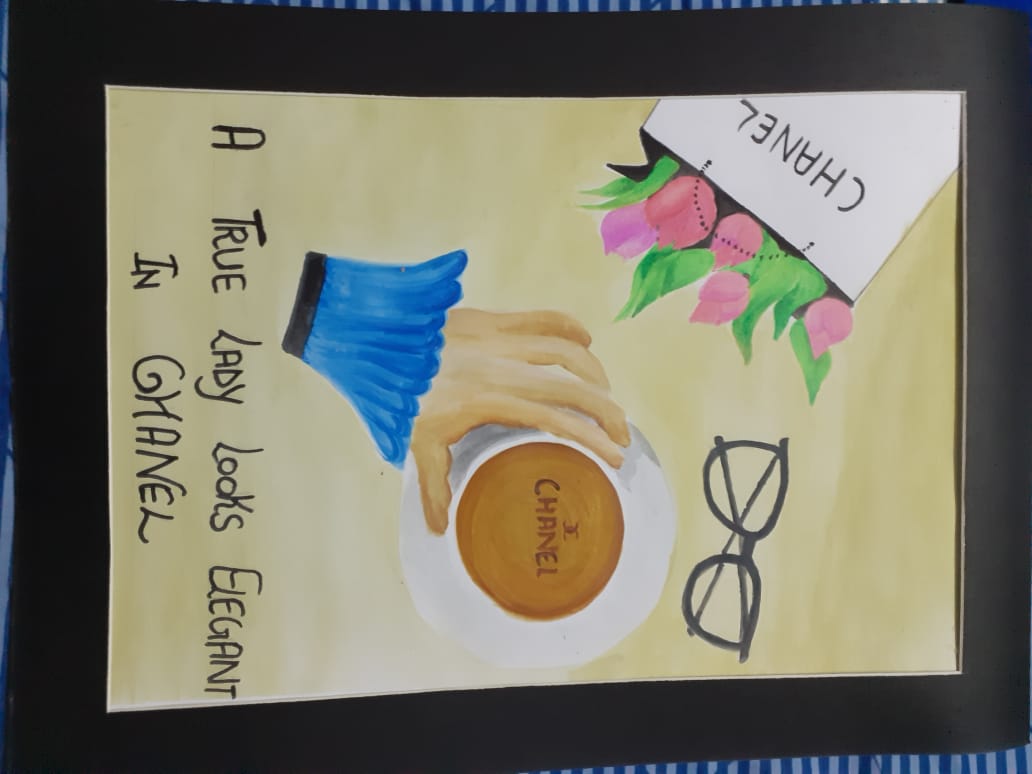 CHANEL
CHANEL
A TRUE LADY LOOKS ELEGANT
IN CHANEL